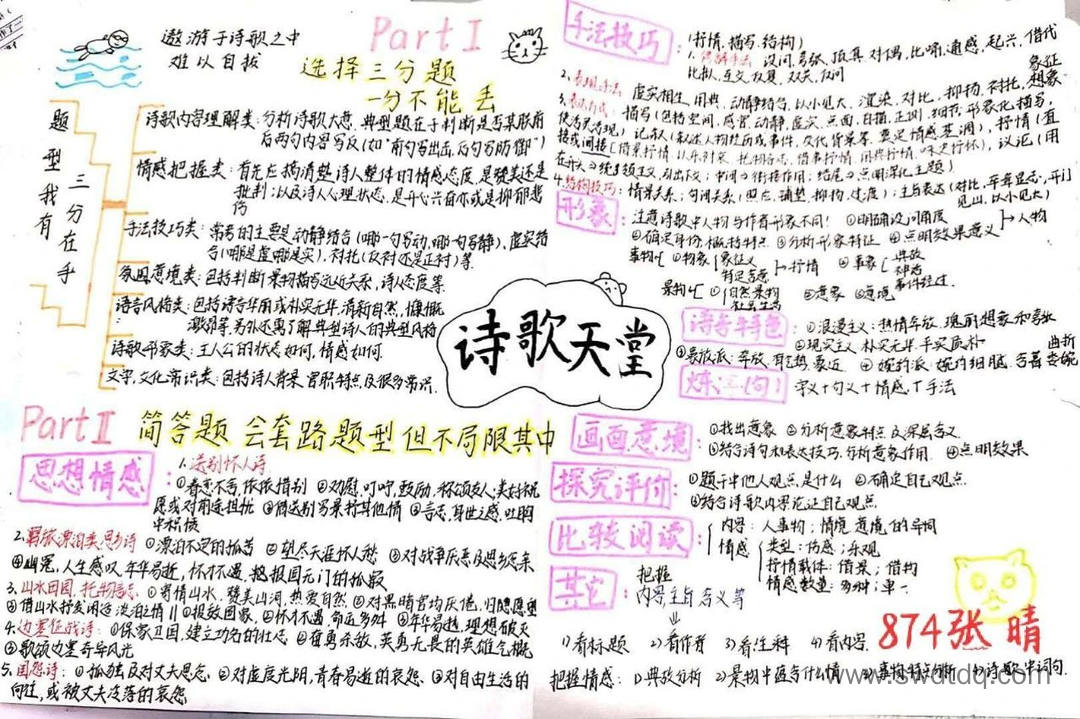 遨游于诗歌之中
难以自拔
Part I
选择三分题
一分不能丢
题型我有
三分在手
诗歌内容理解类:分析诗歌大意.典型题在于判断是否某联前
后两句内容写反(如"前句写出击,后句写防御")
情感把握类:首先应搞清楚诗人整体的情感态度,是赞美还是
批判;以及诗人心理状态,是开心兴奋亦或是抑郁悲
伤
手法技巧类:常考的主要是动静结合(哪一句写动,哪一句写静),虚实结
合(哪是虚哪是实),衬托(反衬还是正衬)等.
氛围意境类:包括判断景物描写远近关系,诗人态度等
语言风格类:包括语言华丽或朴实无华,清新自然,慷慨
激昂等,另外还需了解典型诗人的典型风格
诗歌形象类:主人公的状态如何,情感如何.
文学,文化常识类:包括诗人背景,官职特点及很多常识.
诗歌天堂
Part II 简答题 会套路题型但不局限其中
思想情感
1.送别怀人诗
①眷恋不舍,依依惜别 ②劝慰,叮咛,鼓励,称颂友人;美好祝
愿或对前途担忧 ③借送别写景抒其他情 ④言志,身世之感,吐胸
中积愤
2.羁旅漂泊类思乡诗 ①漂泊不定的孤苦 ②望尽天涯怀人愁 ③对战争厌恶及思乡忘亲
④幽怨,人生感叹,年华易逝,怀才不遇,想报国无门的孤寂
3.山水田园,托物言志.①寄情山水,赞美山河,热爱自然 ②对黑暗官场厌倦,归隐愿望
③借山水抒发闲适淡泊之情 ①报效国家.②怀才不遇,命运多舛 ③年华易逝,理想破灭
4.边塞征战诗:①保家卫国,建立功名的壮志 ②奋勇杀敌,英勇无畏的英雄气概
③歌颂边塞奇异风光
5.闺怨诗:①孤独及对丈夫思念.②对虚度光阴,青春易逝的哀怨.③对自由生活的
向往,或被丈夫冷落的哀怨
手法技巧:(抒情,描写,结构)
1.修辞手法 设问,夸张,顶真,对偶,比喻,通感,起兴,借代
比拟,互文,反复,双关,反问 象征
2.表现手法 虚实相生,用典,动静结合,以小见大,渲染,对比,抑扬,衬托,想象
3.表达方式:描写(包括空间,感官,动静,虚实,点面,白描,正侧,细节,形象化描写,
抒情(直
接或间接
议论(用
4.结构技巧:情景关系;句间关系(照应,铺垫,抑扬,过渡);主旨表达(对比,卒章显志,开门
见山,以小见大)
形象:注意诗歌中人物与作者形象不同! ①明确设问角度
②确定身份,概括特点 ③分析形象特征 ④点明效果意义→人物
事物 ①物象 象征义 →抒情 ②事象 典故
神话
事件经过.
景物 ①自然景物 ②意象 ③意境
诗言特色:①浪漫主义:热情奔放,瑰丽想象和夸张
②现实主义 朴实无华,平实质朴
③豪放派:奔放 ④婉约派:婉约细腻,含蓄委婉 曲折
炼字(句) 字义+句义+情感+手法
画面意境:①找出意象 ②分析意象特点及深层含义.
③结合诗句和表达技巧,分析意象作用.④点明效果
探究评价:①题干中他人观点是什么 ②确定自己观点.
③结合诗歌内容论证自己观点.
比较阅读:内容:人事物;情境,意境,的异同
情感 类型:伤感;乐观
抒情载体:借景;借物
情感数量:多种;单一
其它:把握
内容,主旨,含义等
1)看标题 2)看作者 3)看注释 4)看内容.
把握情感:1)典故分析 2)景物中蕴含什么情 3)事物特点分析 4)诗歌中词句.
874张晴
www.swdtdq.com